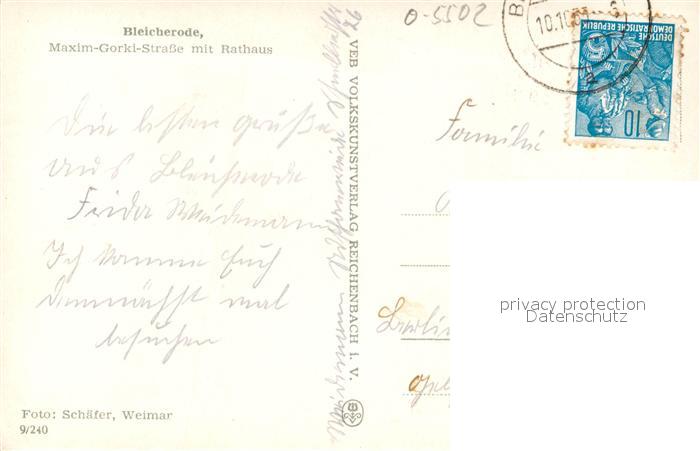 Bleicherode,
Maxim-Gorki-Straße mit Rathaus
O-5502
10.10.
DEUTSCHE
DEMOKRATISCHE REPUBLIK
10
Familie
Die besten Grüße
aus Bleicherode
Frida Weidemann
Ich komme Euch
demnächst mal
besuchen
Berlin
Weidemann
VEB VOLKSKUNSTVERLAG REICHENBACH i. V.
Foto: Schäfer, Weimar
9/240
privacy protection
Datenschutz